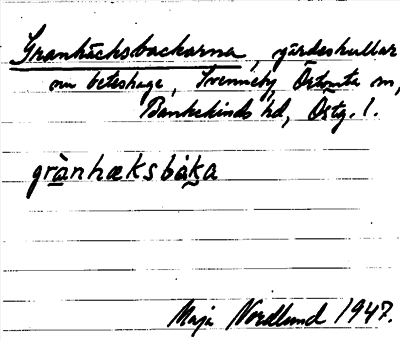 Granhäcksbackarna, gärdeskullar
nu beteshage, Svenneby, Östomta m,
Bankekinds hd, Östg. l.
grànhæksbaka
Maja Nordlund 1947.